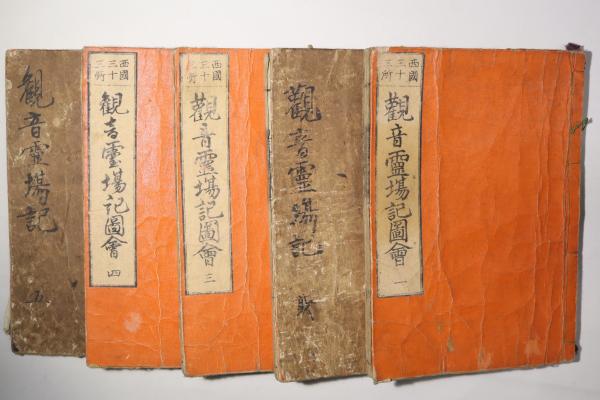 西國
三十
三所
觀音靈場記圖會
一
觀音靈場記
西國
三十
三所
觀音靈場記圖會
三
西國
三十
三所
観音靈場記圖會
四
観音靈場記
五